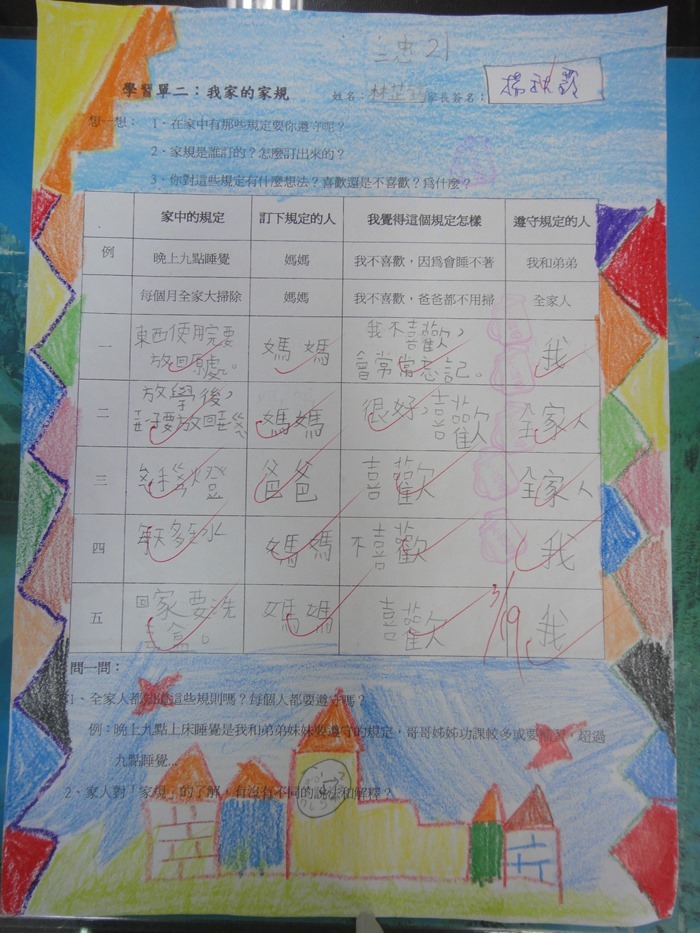 三忠21
學習單二：我家的家規 姓名：林芷 家長簽名：楊
想一想： 1、在家中有那些規定要你遵守呢？
2、家規是誰訂的？怎麼訂出來的？
3、你對這些規定有什麼想法？喜歡還是不喜歡？為什麼？
家中的規定 訂下規定的人 我覺得這個規定怎樣 遵守規定的人
例 晚上九點睡覺 媽媽 我不喜歡，因為會睡不著 我和弟弟
每個月全家大掃除 媽媽 我不喜歡，爸爸都不用掃 全家人
一 東西使用完要放回原處。 媽媽 我不喜歡，會常常忘記。 我
二 放學後，要放回 媽媽 很好，喜歡 全家人
三 燈 爸爸 喜歡 全家人
四 每天多 水 媽媽 不喜歡 我
五 回家要洗 盒。 媽媽 喜歡 我
3/19
問一問：
1、全家人都知道這些規則嗎？每個人都要遵守嗎？
例：晚上九點上床睡覺是我和弟弟妹妹要遵守的規定，哥哥姊姊功課較多或要 ，超過
九點睡覺...
2、家人對「家規」的了解，有沒有不同的說法和解釋？